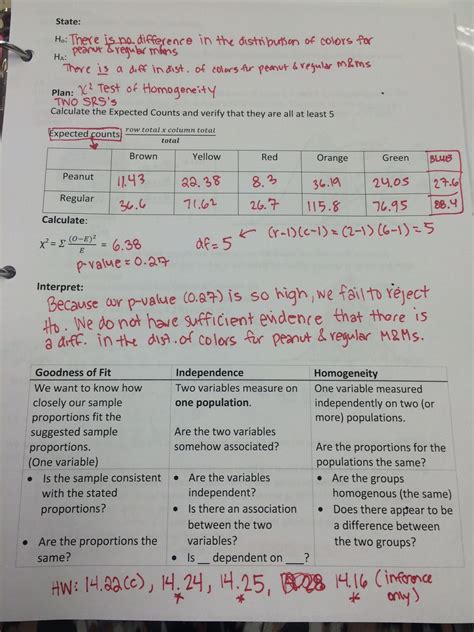 State:
H₀: There is no difference in the distribution of colors for
peanut & regular m&ms
Hᴀ:
There is a diff in dist. of colors for peanut & regular M&Ms
Plan: χ² Test of Homogeneity
TWO SRS's
Calculate the Expected Counts and verify that they are all at least 5
Expected counts row total x column total
total
Brown Yellow Red Orange Green BLUE
Peanut 11.43 22.38 8.3 36.19 24.05 27.6
Regular 36.6 71.62 26.7 115.8 76.95 88.4
Calculate:
χ² = Σ (O−E)²/E = 6.38 df = 5 ← (r-1)(c-1) = (2-1)(6-1) = 5
p-value = 0.27
Interpret:
Because our p-value (0.27) is so high, we fail to reject
Ho. We do not have sufficient evidence that there is
a diff. in the dist. of colors for peanut & regular M&Ms.
Goodness of Fit Independence Homogeneity
We want to know how Two variables measure on One variable measured
closely our sample one population. independently on two (or
proportions fit the more) populations.
suggested sample Are the two variables
proportions. somehow associated? Are the proportions for the
(One variable) populations the same?
• Is the sample consistent • Are the variables • Are the groups
with the stated independent? homogenous (the same)
proportions? • Is there an association • Does there appear to be
between the two a difference between
• Are the proportions the variables? the two groups?
same? • Is __ dependent on ___?
HW: 14.22(c), 14.24, 14.25, 14.16 (inference
* * only)